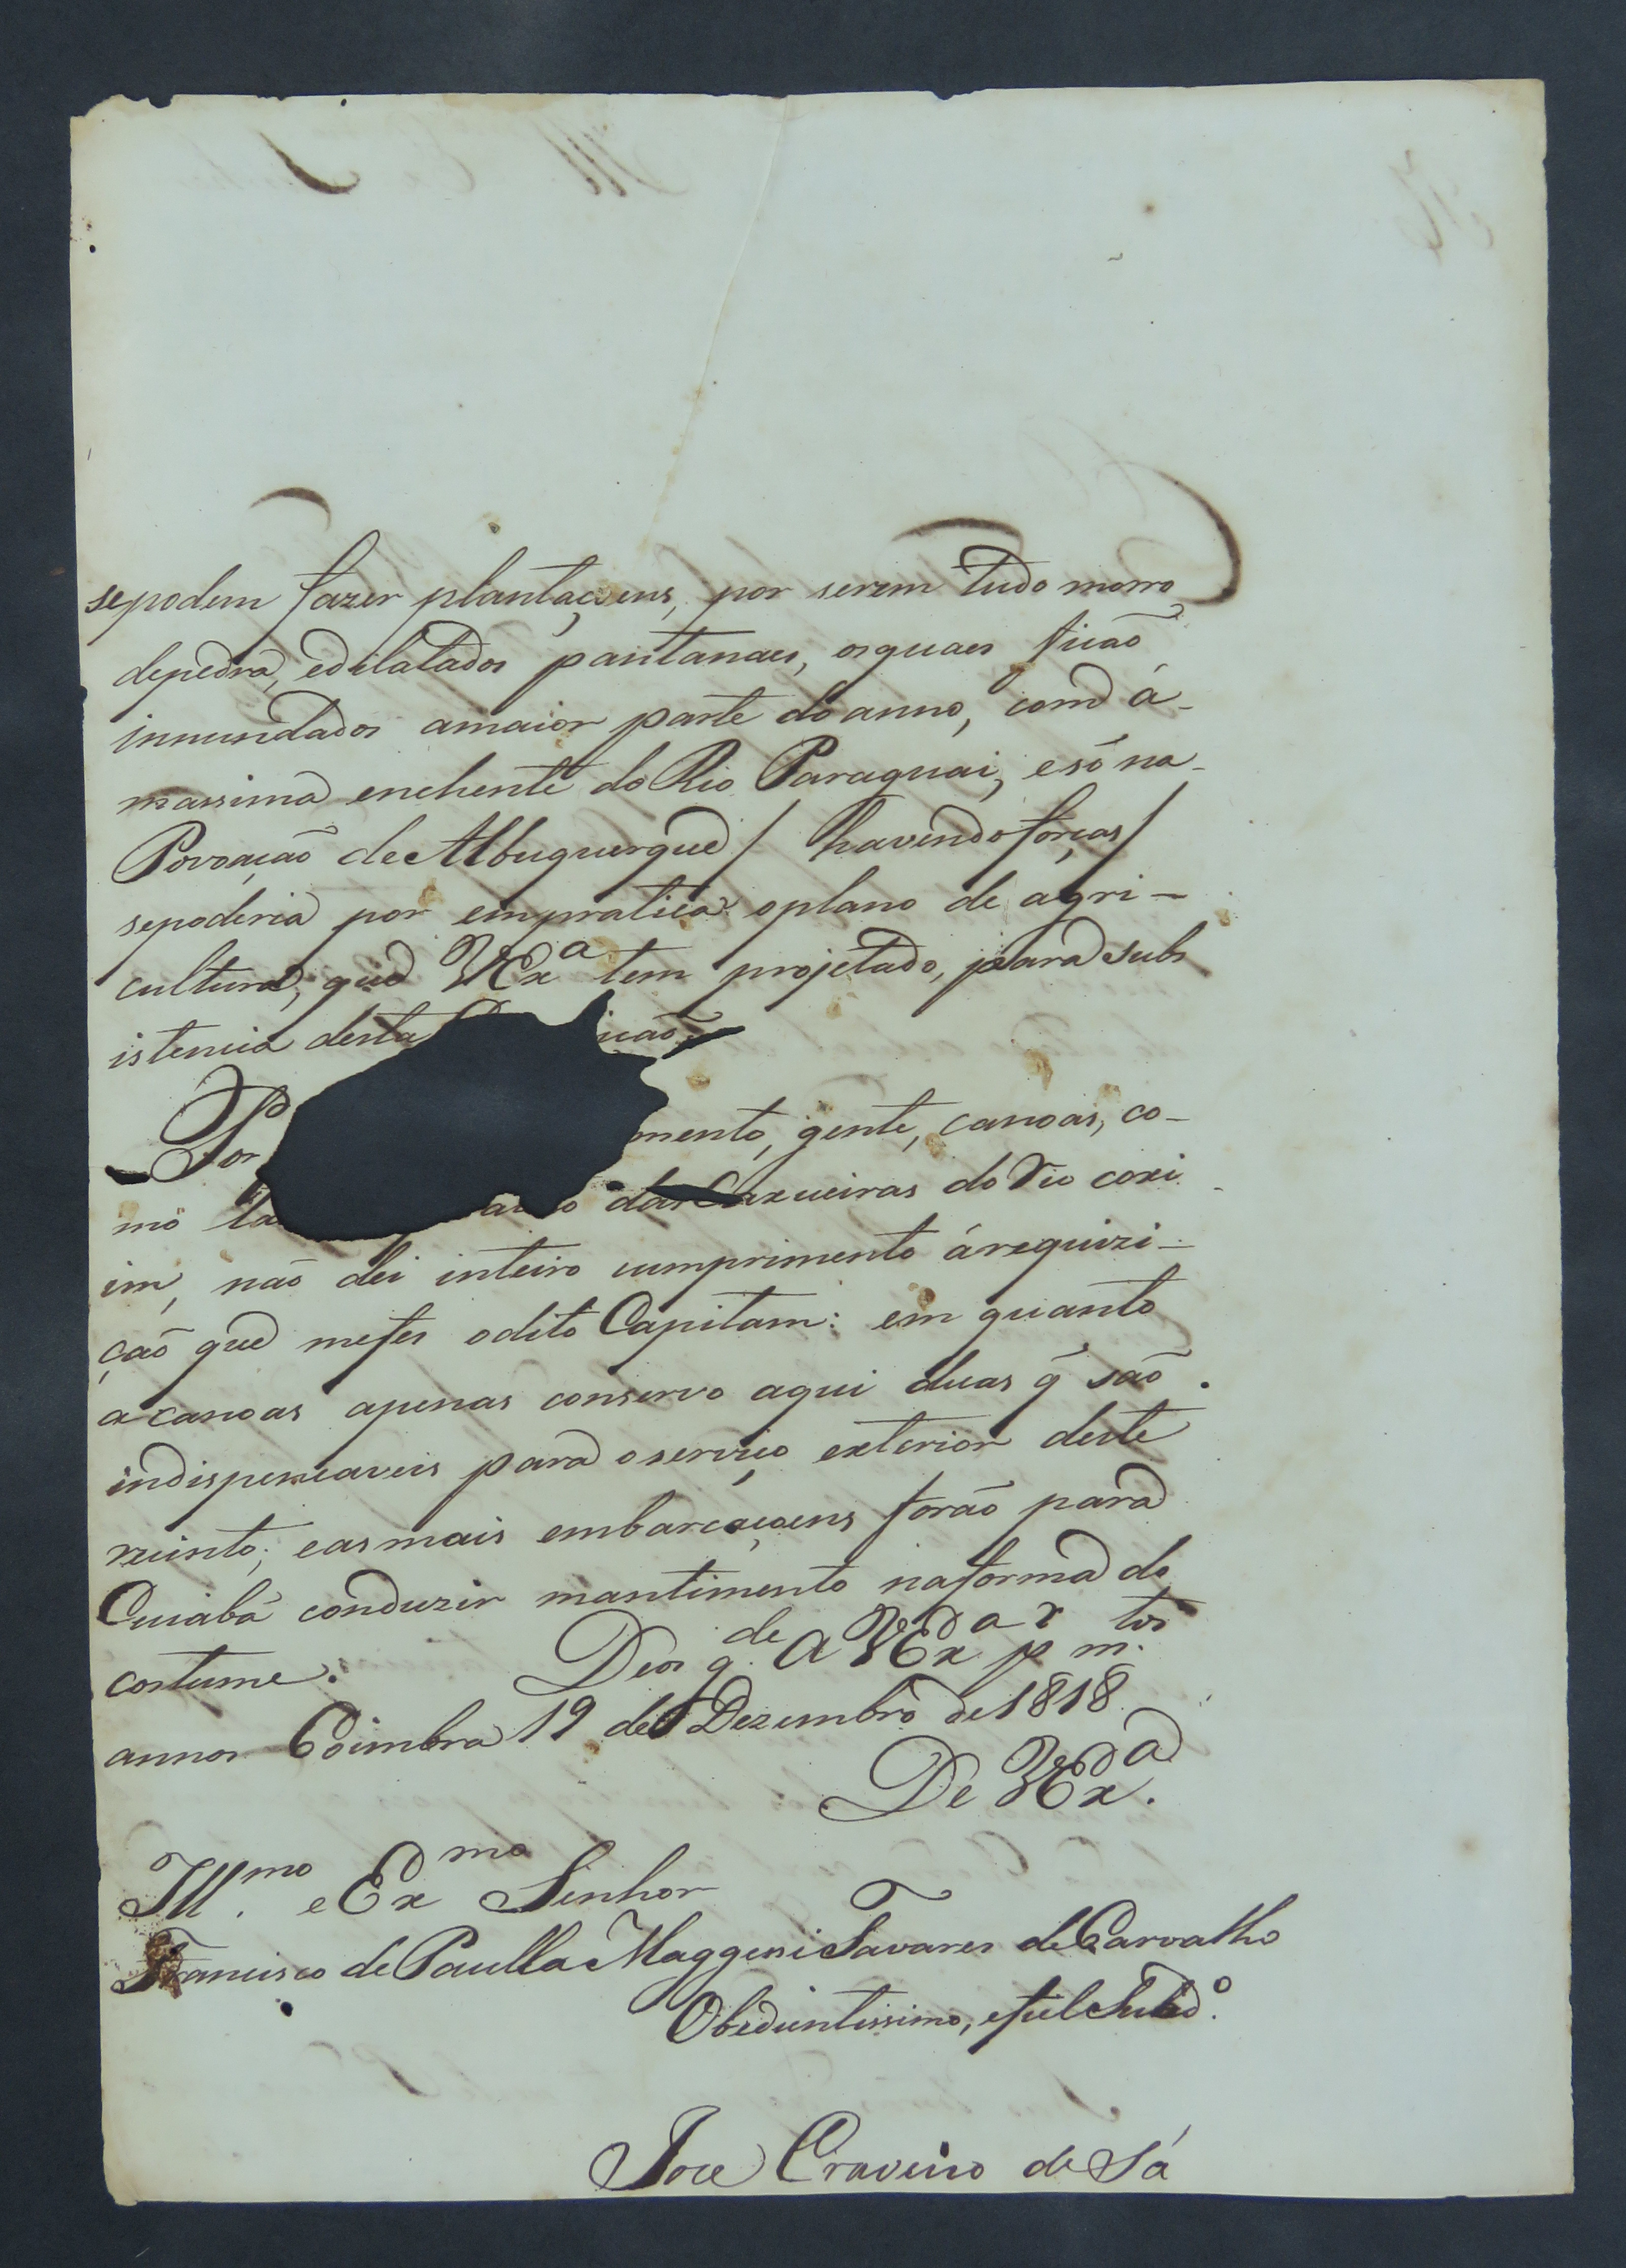 sepodem fazer plantaçoens, por serem tudo morro
depedra, edilatados pantanaes, osquaes ficaõ
innundados amaior parte do anno, com á-
massima enchente do Rio Paraguai, esó na-
Povoaçaõ de Albuquerque / havendo forças /
sepoderia por empratica oplano de agri-
cultura, que VEx.ª tem projetado, para subs
istencia desta icaõ.
Por mento, gente, canoas, co-
mo das Caxueiras do Rio coxi-
im, naõ dei inteiro cumprimento árequizi-
çaõ que mefes odito Capitam: em quanto
a canoas apenas conservo aqui duas q̃ saõ
indispenсaveis para oserviço exterior deste
recinto; easmais embarcaçoens foraõ para
Cuiabá conduzir mantimento naforma do
costume. Deos g.de a VEx.ª p.r m.tos
annos Coimbra 19 de Dezembro de 1818
De VEx.ª
Ill.mo e Ex.mo Senhor
Francisco de Paulla Maggessi Tavares de Carvalho
Obedientissimo, efiel Subd.º
Joze Craveiro de Sá